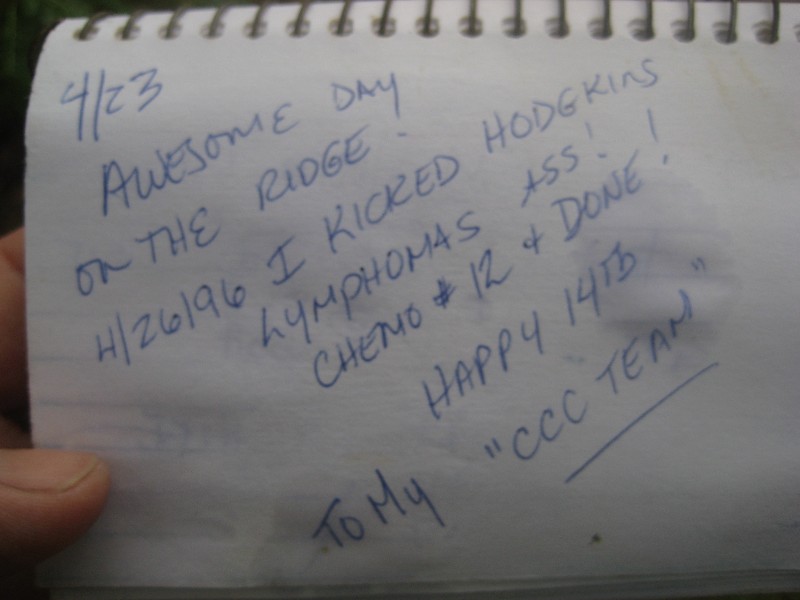 4/23
AWESOME DAY
ON THE RIDGE.
4/26/96 I KICKED HODGKINS
LYMPHOMAS ASS!
CHEMO # 12 + DONE!
HAPPY 14TH
TO MY "CCC TEAM"